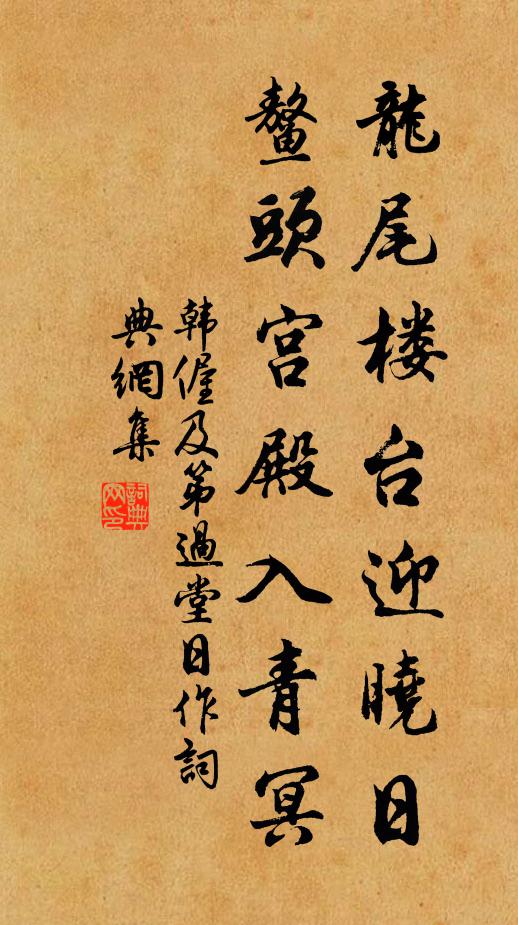 龍尾楼台迎曉日
鼇頭宫殿入青冥
韩偓及第過堂日作詞
典網集
詞典
网印